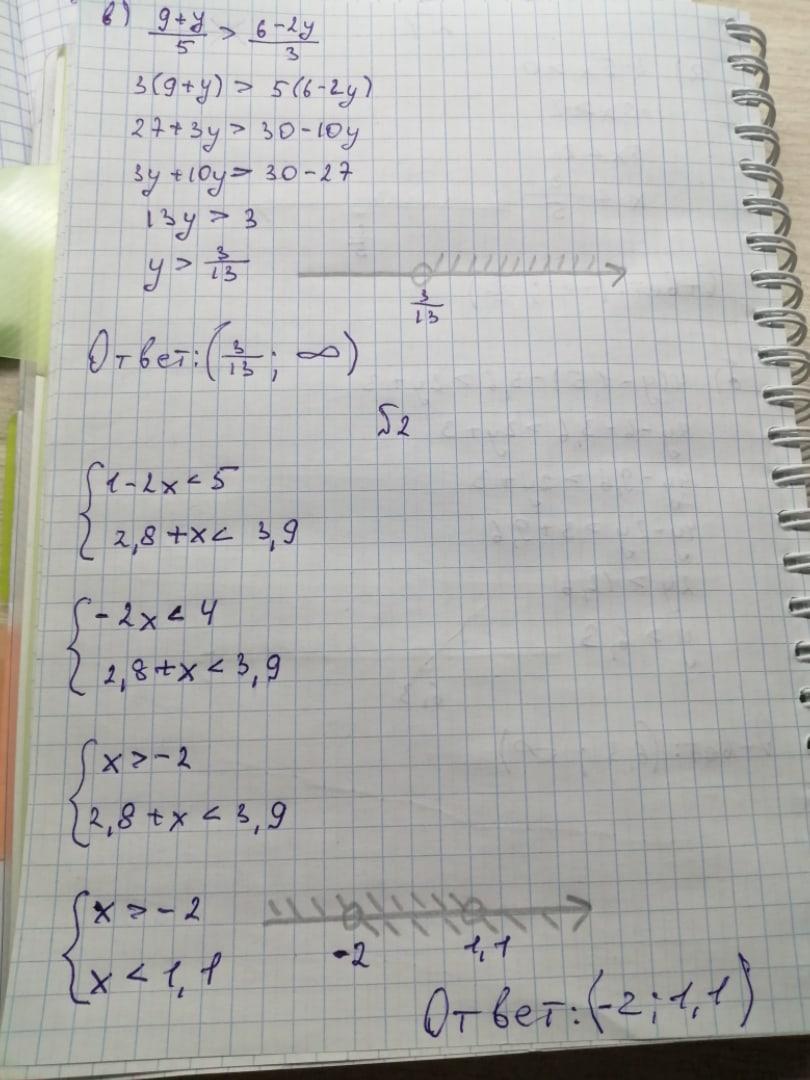 в) (9+y)/5 > (6-2y)/3
3(9+y) > 5(6-2y)
27+3y > 30-10y
3y+10y > 30-27
13y > 3
y > 3/13
3/13
Ответ: (3/13; ∞)
№2
{ 1-2x < 5
2,8+x < 3,9
{ -2x < 4
2,8+x < 3,9
{ x > -2
2,8+x < 3,9
{ x > -2
x < 1,1
-2 1,1
Ответ: (-2; 1,1)